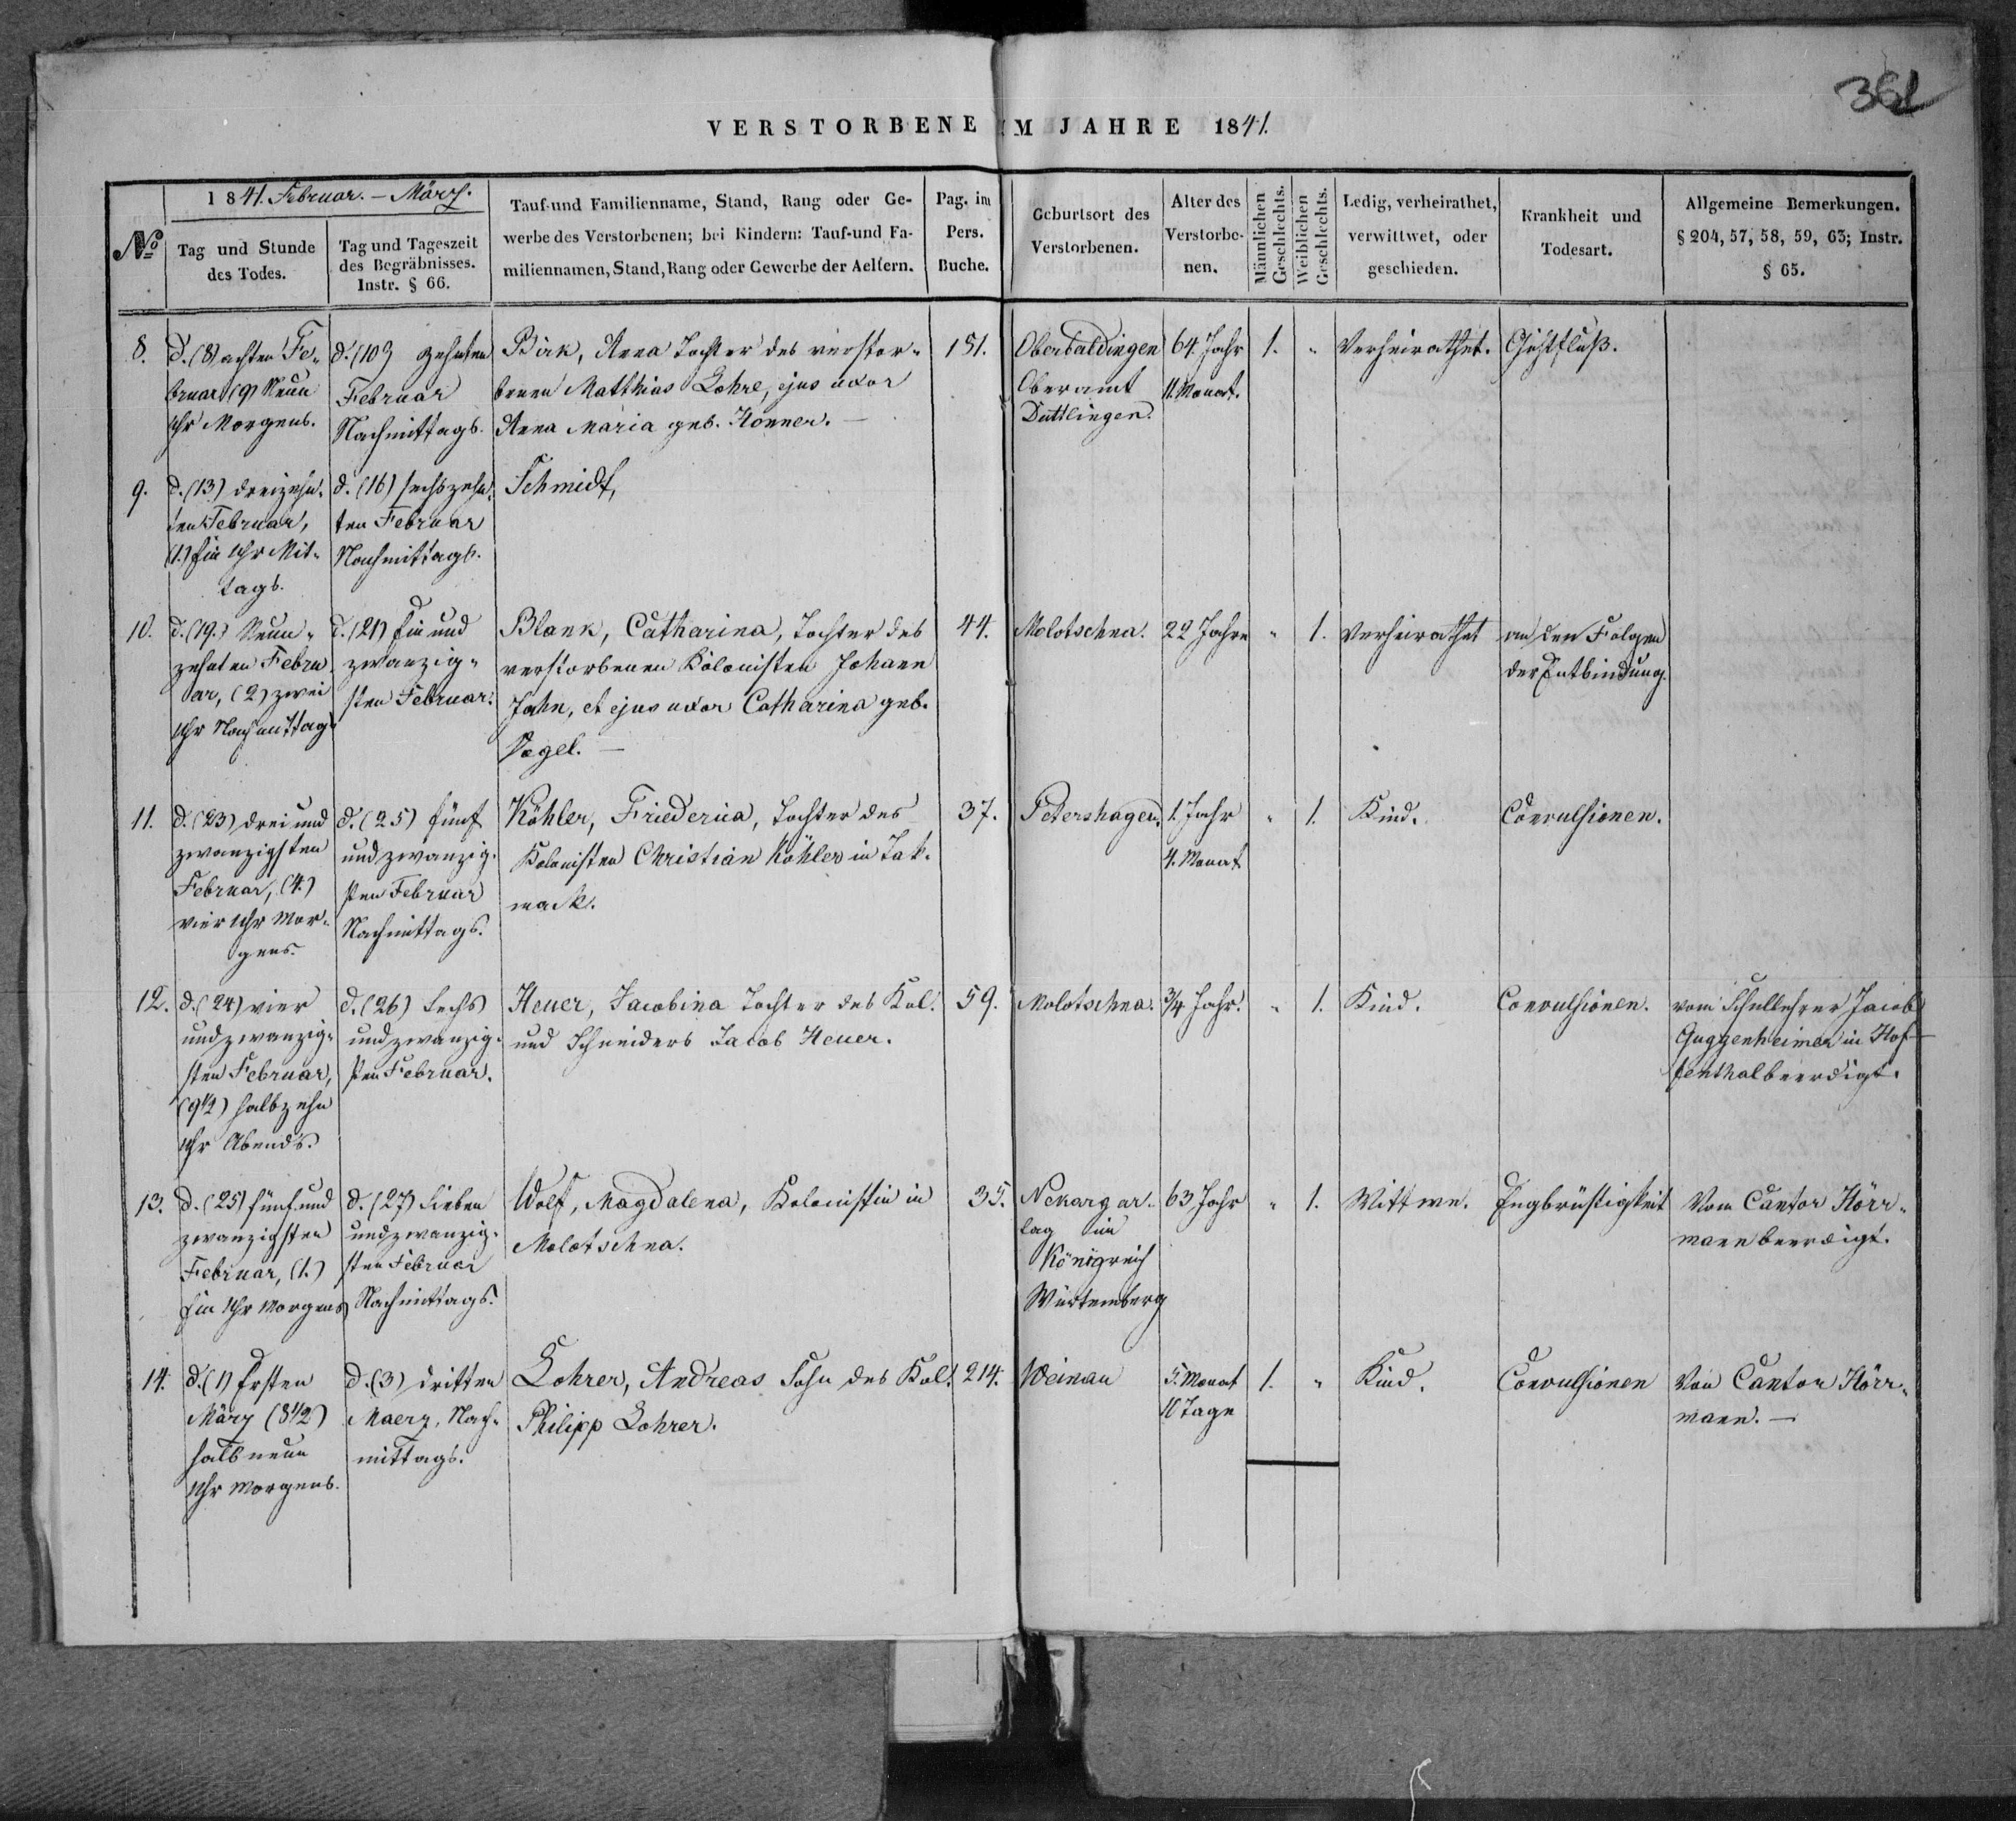 361
VERSTORBENE IM JAHRE 1841.
No
1841. Februar. – März.
Tag und Stunde
des Todes.
Tag und Tageszeit
des Begräbnisses.
Instr. § 66.
Tauf-und Familienname, Stand, Rang oder Ge-
werbe des Verstorbenen; bei Kindern: Tauf-und Fa-
miliennamen, Stand, Rang oder Gewerbe der Aeltern.
Pag. im
Pers.
Buche.
Geburtsort des
Verstorbenen.
Alter des
Verstorbe-
nen.
Männlichen
Geschlechts.
Weiblichen
Geschlechts.
Ledig, verheirathet,
verwittwet, oder
geschieden.
Krankheit und
Todesart.
Allgemeine Bemerkungen.
§ 204, 57, 58, 59, 63; Instr.
§ 65.
8.
d. (8) achten Fe-
bruar (9) Neun
Uhr Morgens.
d. (10) zehnten
Februar
Nachmittags.
Birk, Anna Tochter des verstor-
benen Matthias Lohre, ejus uxor
Anna Maria geb. Honner. —
151.
Oberbaldingen
Oberamt
Duttlingen.
64. Jahr
11. Monat.
1.
"
Verheirathet.
Gichtfluß.
9.
d. (13) dreizehn-
ten Februar,
(1.) Ein Uhr Mit-
tags.
d. (16) sechszehn-
ten Februar
Nachmittags.
Schmidt,
10.
d. (19.) Neun-
zehnten Febru
ar, (2) zwei
Uhr Nachmittag
d. (21) Ein und
zwanzig-
sten Februar.
Blank, Catharina, Tochter des
verstorbenen Kolonisten Johann
Jahn, et ejus uxor Catharina geb.
Vogel. —
44.
Molotschna.
22 Jahre
"
1.
Verheirathet
an den Folgen
der Entbindung.
11.
d. (23) drei und
zwanzigsten
Februar, (4.)
vier Uhr Mor-
gens.
d. (25) fünf
und zwanzig-
sten Februar
Nachmittags.
Köhler, Friederica, Tochter des
Kolonisten Christian Köhler in Tak-
mack.
37.
Petershagen.
1. Jahr
4. Monat
"
1.
Kind.
Convulsionen.
12.
d. (24) vier
und zwanzig-
sten Februar,
(9½) halbzehn
Uhr Abends.
d. (26) Sechs
und zwanzig-
sten Februar.
Heuer, Jacobina Tochter des Kol.
und Schneiders Jacob Heuer.
59.
Molotschna.
¾ Jahr.
"
1.
Kind.
Convulsionen.
vom Schullehrer Jacob
Guggenheimer in Hof-
fenthal beerdigt.
13.
d. (25) fünf und
zwanzigsten
Februar, (1.)
Ein Uhr Morgens
d. (27) Sieben
und zwanzig-
sten Februar
Nachmittags.
Wolf, Magdalena, Kolonistin in
Molotschna.
35.
Nekargar-
tag im
Königreich
Würtemberg
63 Jahr
"
1.
Wittwe.
Engbrüstigkeit
Vom Cantor Hörr-
mann beerdigt.
14.
d. (1) Ersten
März (8½)
halb neun
Uhr Morgens.
d. (3) dritten
Maerz, Nach-
mittags.
Lohrer, Andreas Sohn des Kol.
Philipp Lohrer.
214.
Weinau
5. Monat
10 Tage
1.
"
Kind.
Convulsionen
Von Cantor Hörr-
mann. —